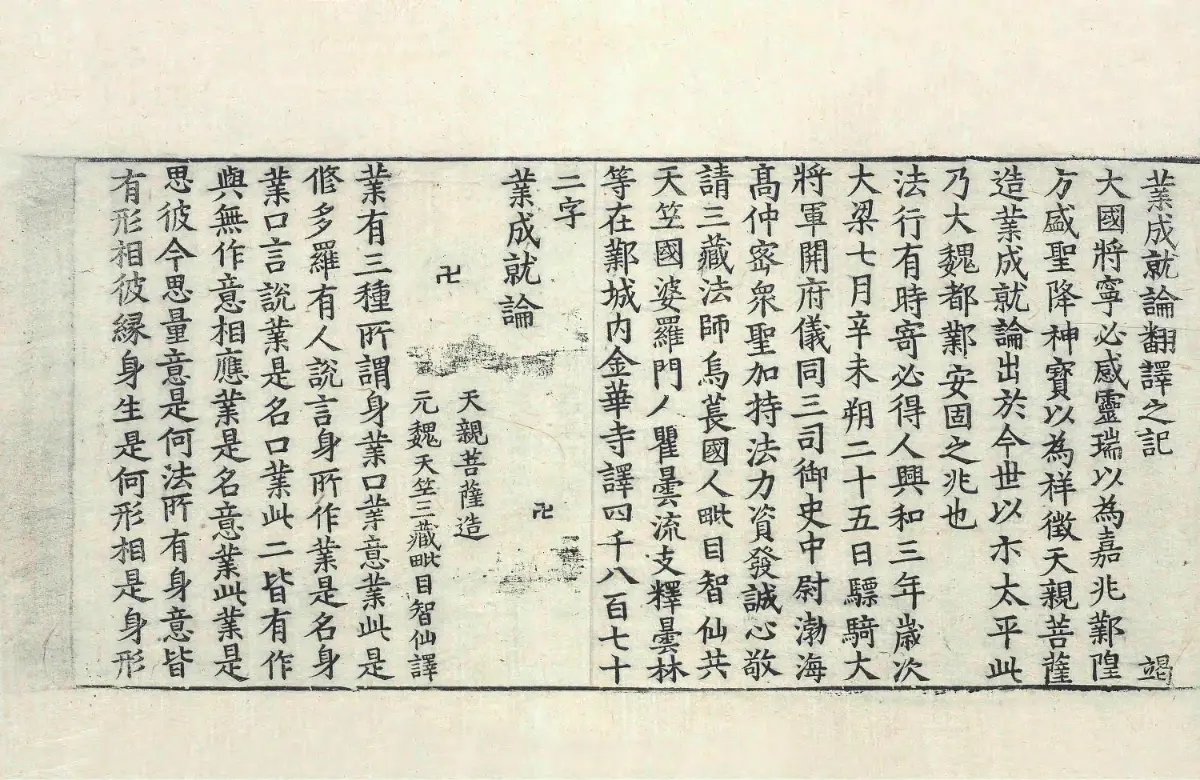 業成就論翻譯之記 竭
大國將寧必感靈瑞以為嘉兆鄴隍
方盛聖降神寶以為祥徵天親菩薩
造業成就論出於今世以示太平此
乃大魏都鄴安固之兆也
法行有時寄必得人興和三年歲次
大梁七月辛未朔二十五日驃騎大
將軍開府儀同三司御史中尉渤海
高仲密衆聖加持法力資發誠心敬
請三藏法師烏萇國人毗目智仙共
天竺國婆羅門人瞿曇流支釋曇林
等在鄴城內金華寺譯四千八百七十
二字
業成就論
卍
卍
天親菩薩造
元魏天竺三藏毗目智仙譯
業有三種所謂身業口業意業此是
修多羅有人說言身所作業是名身
業口言說業是名口業此二皆有作
與無作意相應業是名意業此業是
思彼今思量意是何法所有身意皆
有形相彼緣身生是何形相是身形